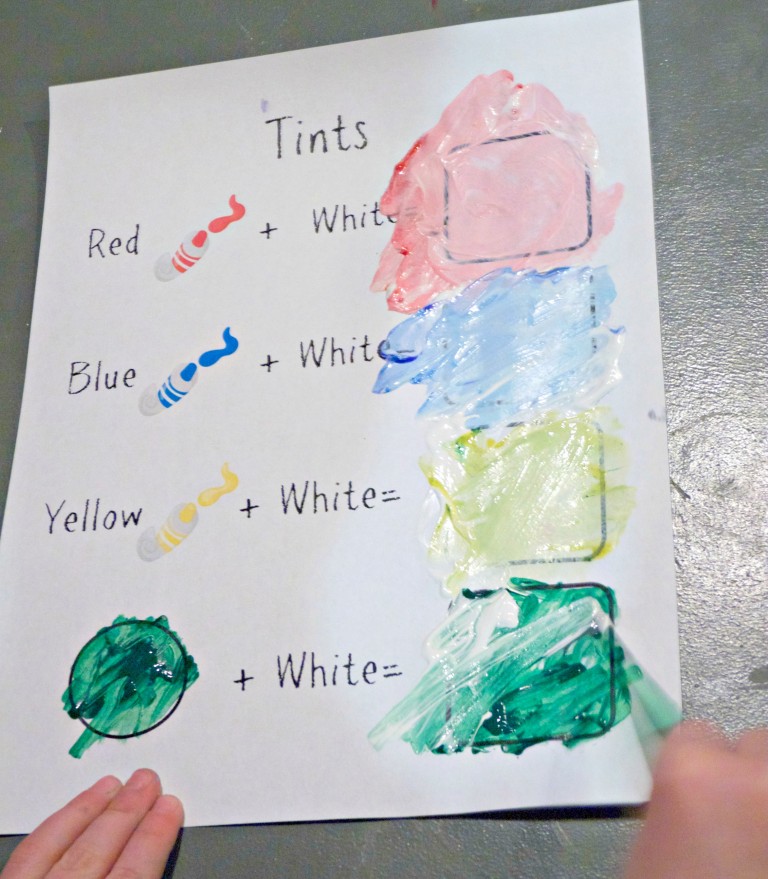 Tints
Red + White=
Blue + White=
Yellow + White=
+ White=